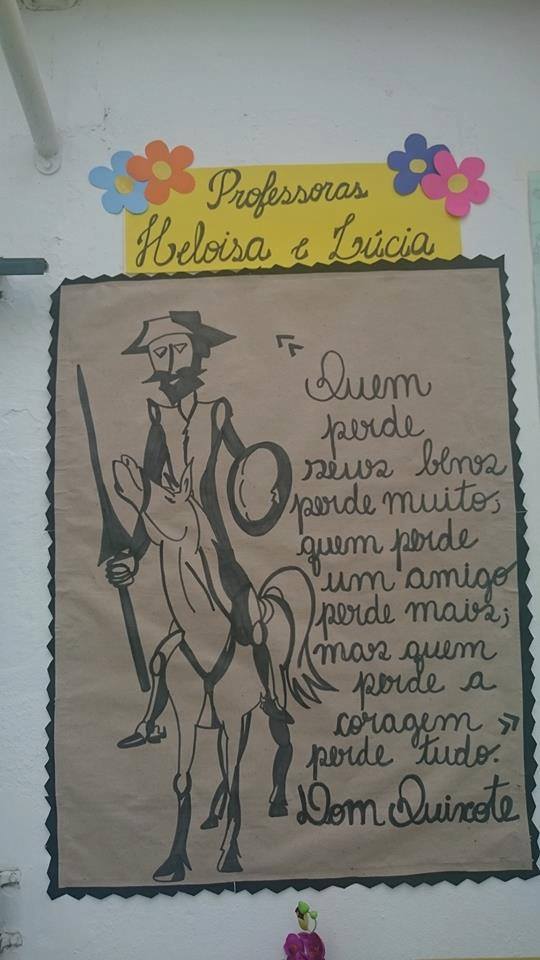 Professoras
Heloisa e Lúcia
“ Quem
perde
seus bens
perde muito;
quem perde
um amigo
perde mais;
mas quem
perde a
coragem ”
perde tudo.
Dom Quixote